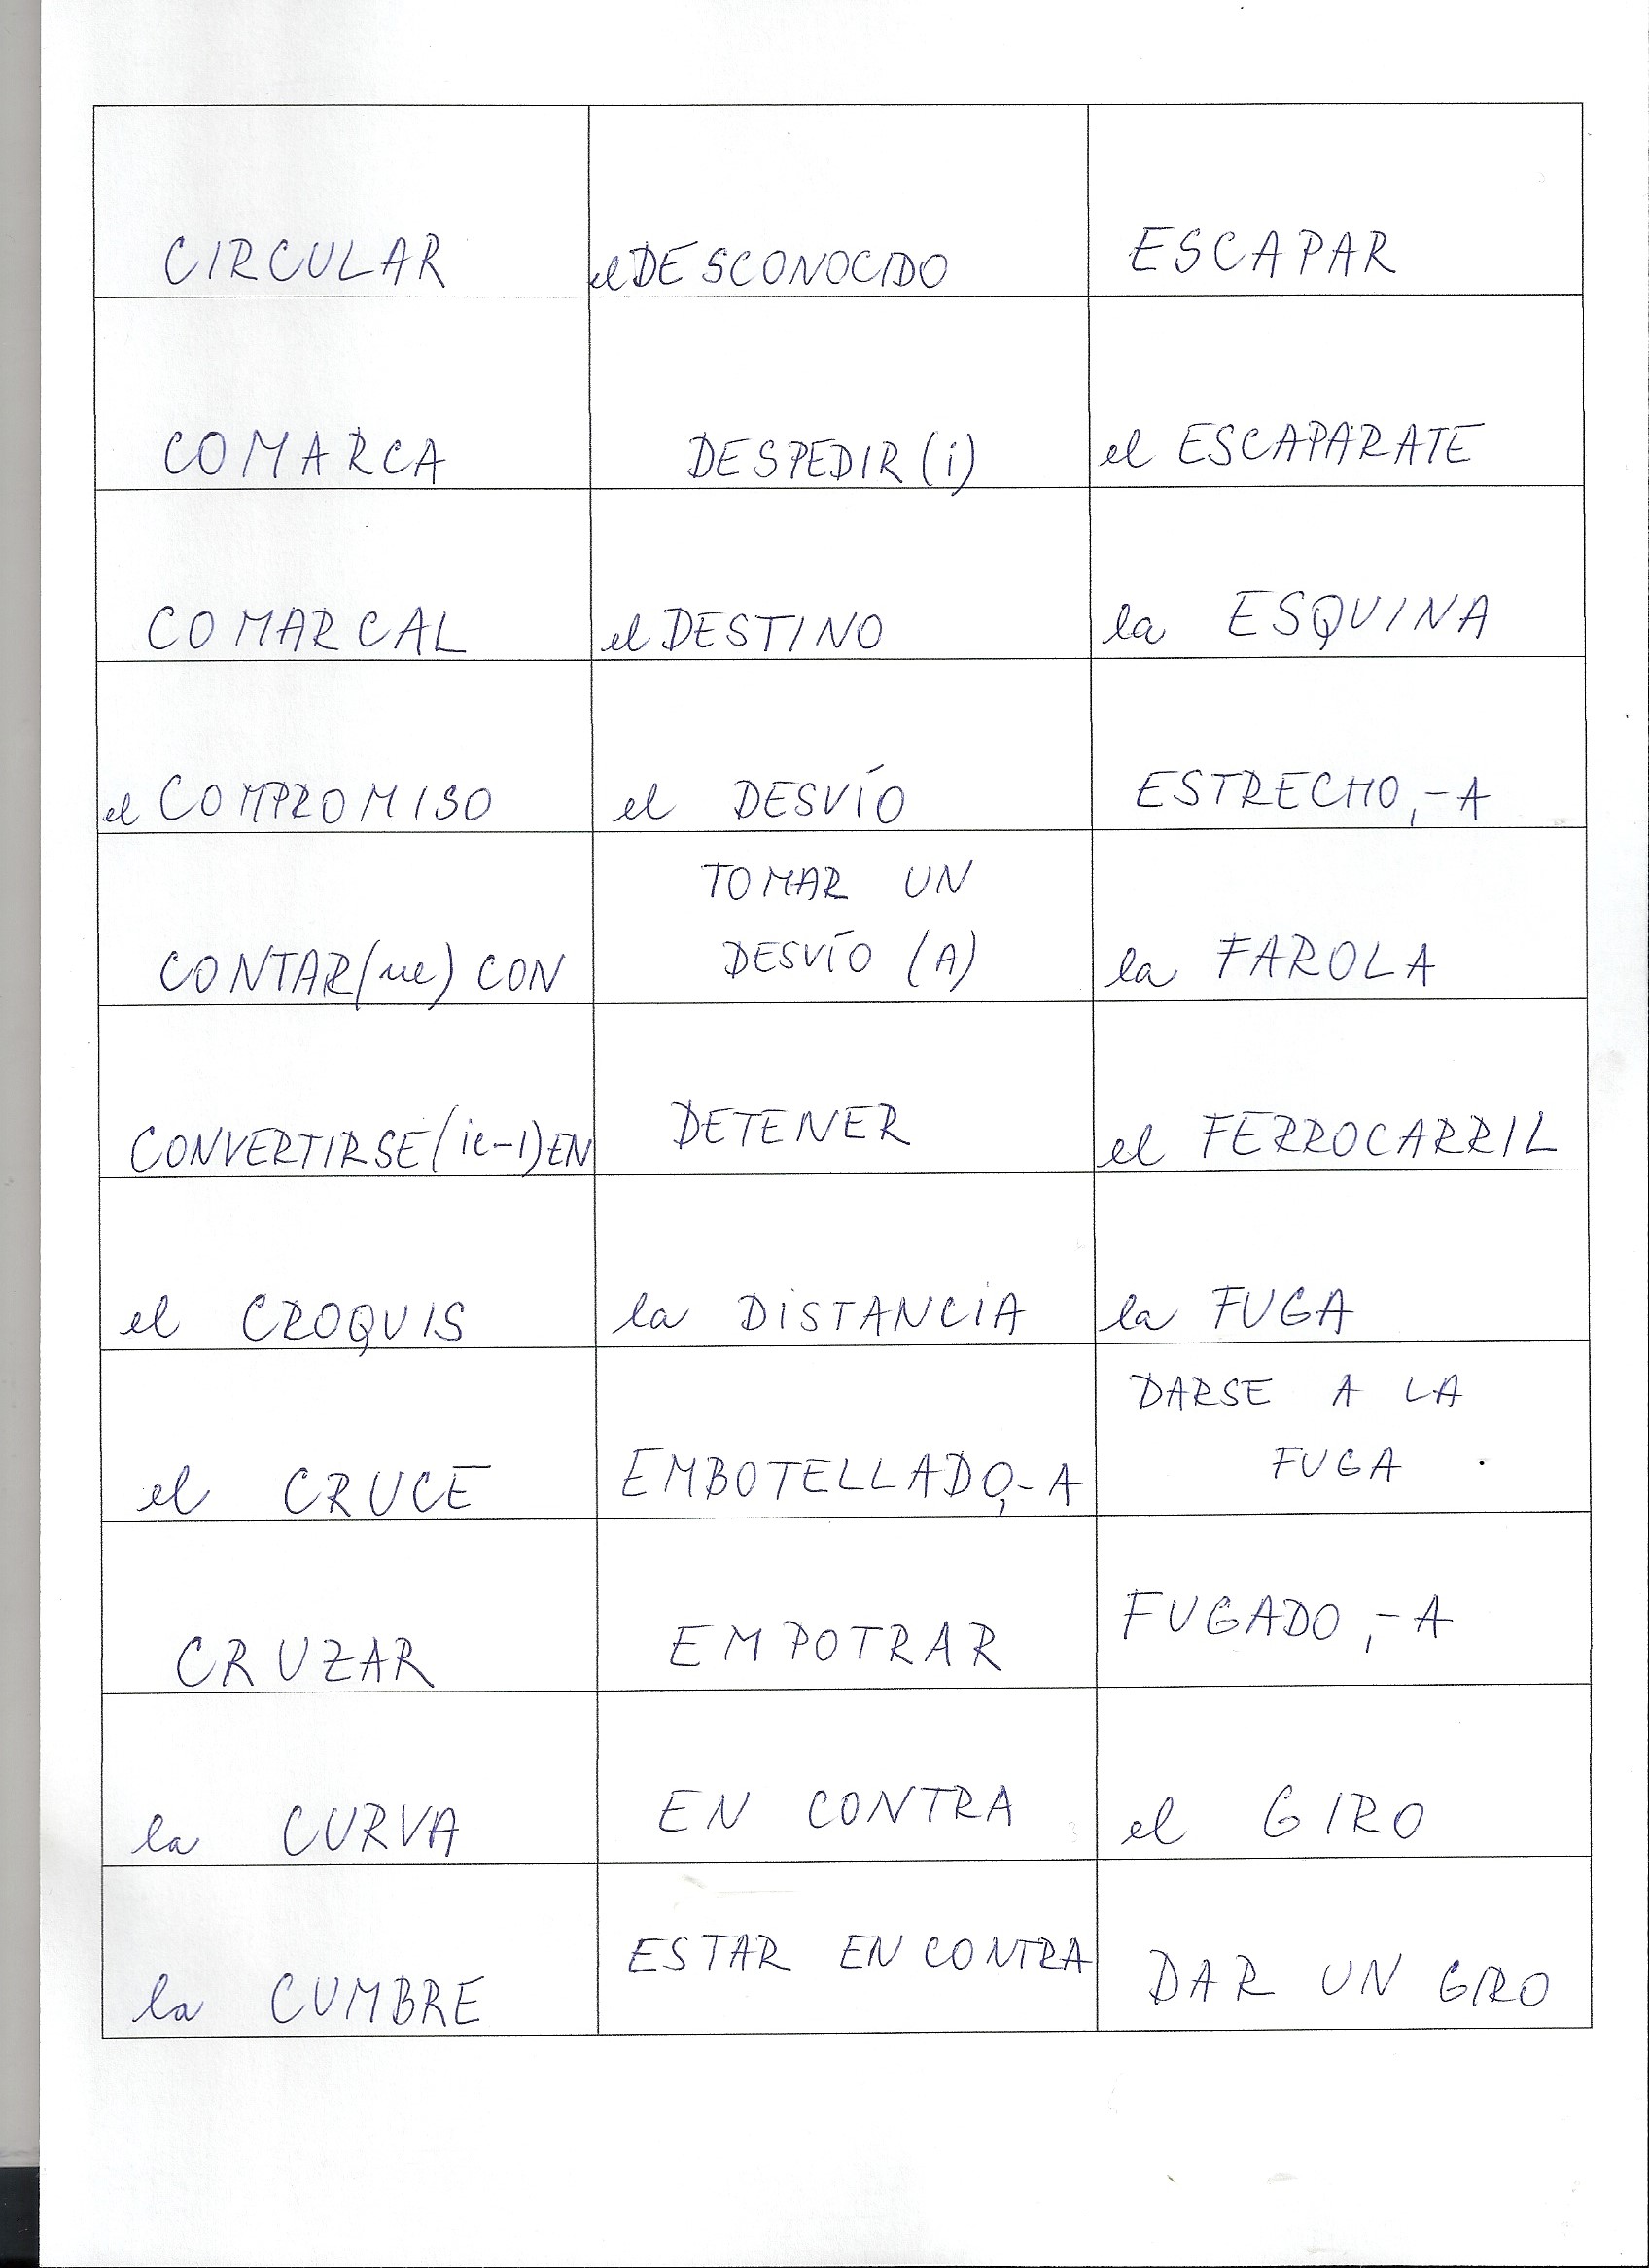 CIRCULAR
el DESCONOCIDO
ESCAPAR
COMARCA
DESPEDIR (i)
el ESCAPARATE
COMARCAL
el DESTINO
la ESQUINA
el COMPROMISO
el DESVÍO
ESTRECHO,-A
CONTAR (ue) CON
TOMAR UN
DESVÍO (A)
la FAROLA
CONVERTIRSE (ie-i) EN
DETENER
el FERROCARRIL
el CROQUIS
la DISTANCIA
la FUGA
el CRUCE
EMBOTELLADO,-A
DARSE A LA
FUGA
CRUZAR
EMPOTRAR
FUGADO,-A
la CURVA
EN CONTRA
el GIRO
la CUMBRE
ESTAR EN CONTRA
DAR UN GIRO